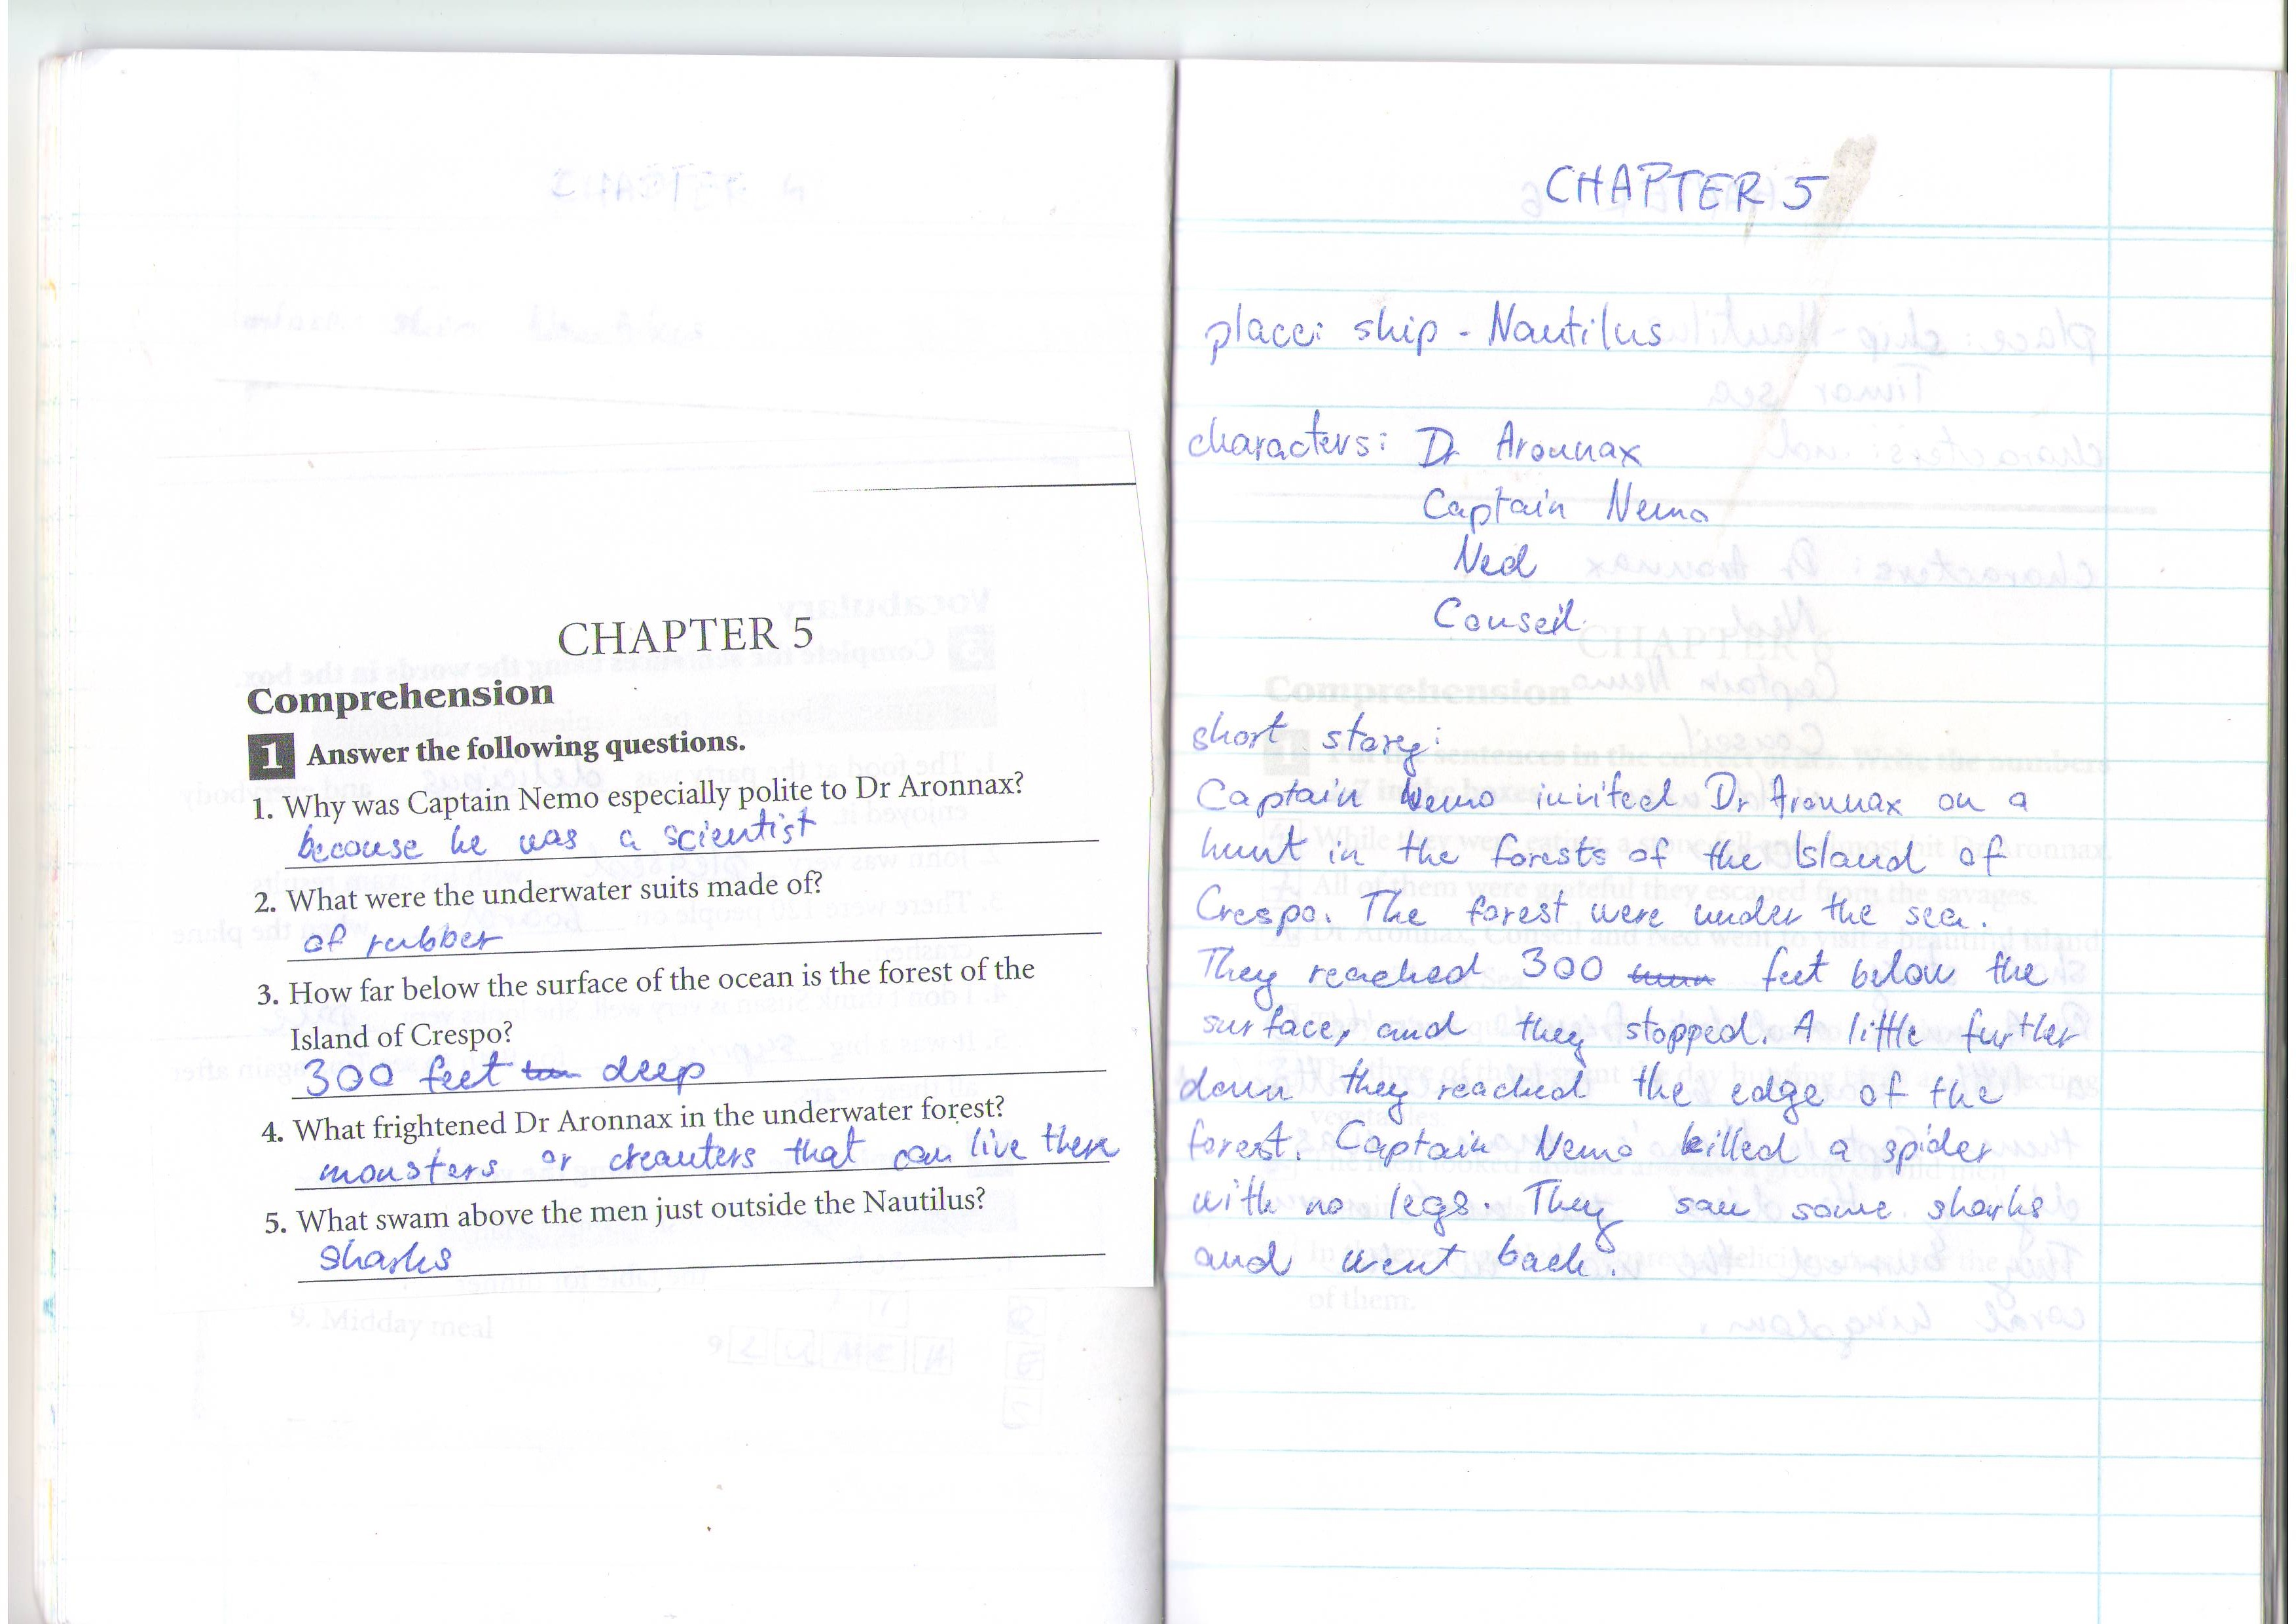 CHAPTER 5
Comprehension
1 Answer the following questions.
1. Why was Captain Nemo especially polite to Dr Aronnax?
becouse he was a scientist
2. What were the underwater suits made of?
of rubber
3. How far below the surface of the ocean is the forest of the
Island of Crespo?
300 feet deep
4. What frightened Dr Aronnax in the underwater forest?
monsters or creauters that can live there
5. What swam above the men just outside the Nautilus?
sharks
9. Midday meal
CHAPTER 5
place: ship - Nautilus
characters: Dr Aronnax
Captain Nemo
Ned
Conseil
short storey:
Captain Nemo invited Dr Aronnax on a
hunt in the forests of the Island of
Crespo. The forest were under the sea.
They reached 300 feet below the
surface, and they stopped. A little further
down they reached the edge of the
forest. Captain Nemo killed a spider
with no legs. They saw some sharks
and went back.